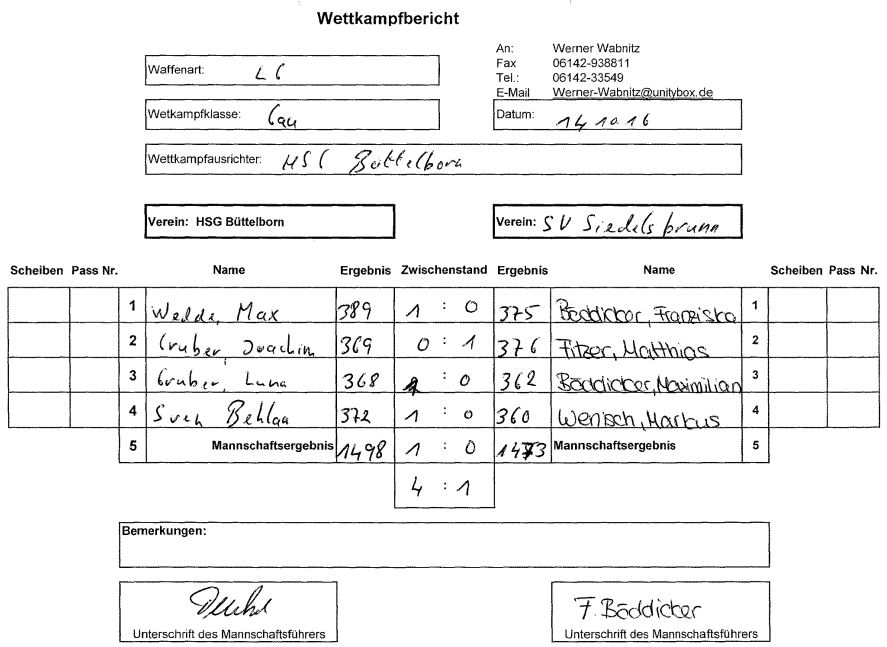 Wettkampfbericht
An: Werner Wabnitz
Fax 06142-938811
Tel.: 06142-33549
E-Mail Werner-Wabnitz@unitybox.de
Waffenart: LG
Wetkampfklasse: Gau
Datum: 14 10.16
Wettkampfausrichter: HSG Büttelborn
Verein: HSG Büttelborn Verein: SV Siedelsbrunn
Scheiben Pass Nr. Name Ergebnis Zwischenstand Ergebnis Name Scheiben Pass Nr.
1 Max 389 1 : 0 375 Böddicker, Franziska 1
2 Gruber Joachim 369 0 : 1 376 Fitzer, Matthias 2
3 Gruber, Luna 368 : 0 362 Böddicker, Maximilian 3
4 Sven 372 1 : 0 360 Wenisch, Markus 4
5 Mannschaftsergebnis 1498 1 : 0 1473 Mannschaftsergebnis 5
4 : 1
Bemerkungen:
F. Böddicker
Unterschrift des Mannschaftsführers Unterschrift des Mannschaftsführers